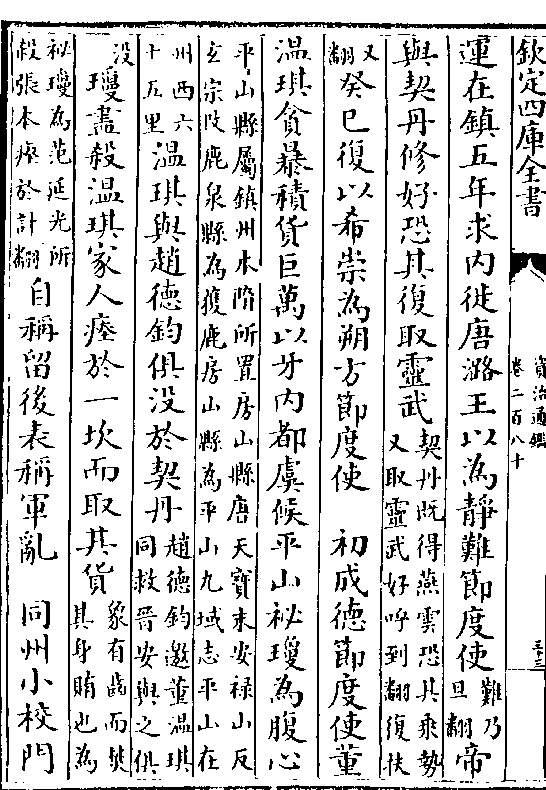 欽定四庫全書
資治通鑑
卷二百八十
三十三
運在鎮五年求内徙唐潞王以為靜難節度使難乃旦翻帝
與契丹修好恐其復取靈武契丹既得燕雲恐其乘勢又取靈武好呼到翻復扶
又翻癸巳復以希崇為朔方節度使 初成德節度使董
温琪貪暴積貨巨萬以牙内都虞候平山祕瓊為腹心
平山縣屬鎮州本隋所置房山縣唐天寶末安禄山反玄宗改鹿泉縣為獲鹿房山縣為平山九域志平山在
州西六十五里温琪與趙德鈞俱没於契丹趙德鈞邀董温琪同救晉安與之俱
没瓊盡殺温琪家人瘞於一坎而取其貨象有齒而焚其身賄也為
祕瓊為范延光所殺張本瘞於計翻自稱留後表稱軍亂 同州小校門